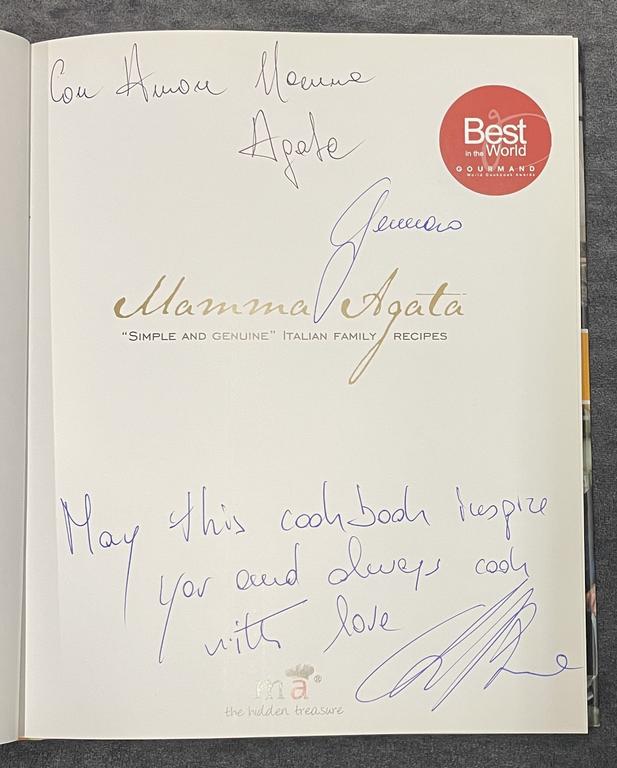 Con Amore Mamma
Agata
Best
in the World
GOURMAND
World Cookbook Awards
Gennaro
Mamma Agata
“SIMPLE AND GENUINE” ITALIAN FAMILY RECIPES
May this cookbook inspire
you and always cook
with love
ma®
the hidden treasure